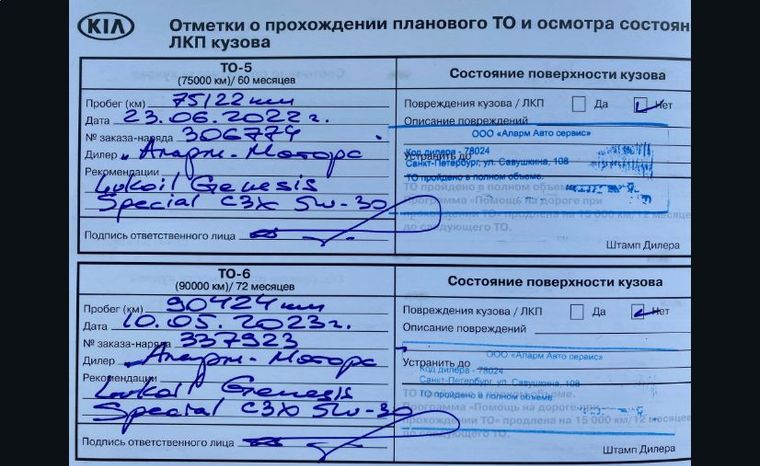 KIA
Отметки о прохождении планового ТО и осмотра состоян
ЛКП кузова
ТО-5
(75000 км)/ 60 месяцев
Состояние поверхности кузова
Пробег (км) 75122 км
Повреждения кузова / ЛКП Да Нет
Дата 23.06.2022 г.
Описание повреждений
№ заказа-наряда 306774
ООО «Аларм Авто сервис»
Дилер „Аларм-Моторс
Код дилера - 78024
Устранить до
Санкт-Петербург, ул. Савушкина, 108
Рекомендации
ТО пройдено в полном объеме
Lukoil Genesis
ТО пройдено в полном объеме.
Special C3X 5w-30
Программа «Помощь на дороге при
прохождении ТО» продлена на 15 000 км/12 месяцев
до следующего ТО.
Подпись ответственного лица
Штамп Дилера
ТО-6
(90000 км)/ 72 месяцев
Состояние поверхности кузова
Пробег (км) 90424 км
Повреждения кузова / ЛКП Да Нет
Дата 10.05.2023г.
Описание повреждений
№ заказа-наряда 337923
ООО «Аларм Авто сервис»
Дилер „Аларм-Моторс
Устранить до
Код дилера - 78024
Санкт-Петербург, ул. Савушкина, 108
Рекомендации
ТО пройдено в полном объеме
Lukoil Genesis
Special C3X 5w-30
Программа «Помощь на дороге при
прохождении ТО» продлена на 15 000 км/12 месяцев
до следующего ТО.
Подпись ответственного лица
Штамп Дилера